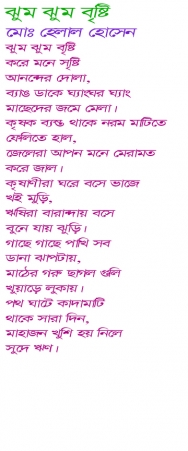 ঝুম ঝুম বৃষ্টি
মোঃ হেলাল হোসেন
ঝুম ঝুম বৃষ্টি
করে মনে সৃষ্টি
আনন্দের দোলা,
ব্যাঙ ডাকে ঘ্যাংঘর ঘ্যাং
মাছেদের জমে মেলা।
কৃষক ব্যস্ত থাকে নরম মাটিতে
ফেলিতে হাল,
জেলেরা আপন মনে মেরামত
করে জাল।
কৃষাণীরা ঘরে বসে ভাজে
খই মুড়ি,
ঋষিরা বারান্দায় বসে
বুনে যায় ঝুড়ি।
গাছে গাছে পাখি সব
ডানা ঝাপটায়,
মাঠের গরু ছাগল গুলি
খুয়াড়ে লুকায়।
পথ ঘাটে কাদামাটি
থাকে সারা দিন,
মাহাজন খুশি হয় নিলে
সুদে ঋণ।